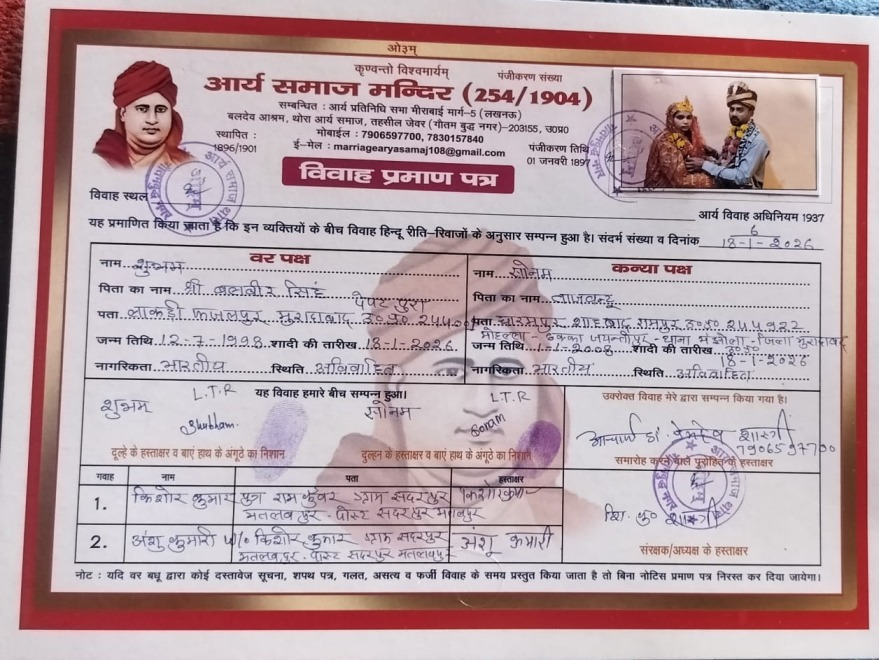 ओ३म्
कृण्वन्तो विश्वमार्यम्
पंजीकरण संख्या
आर्य समाज मन्दिर (254/1904)
सम्बन्धित : आर्य प्रतिनिधि सभा मीराबाई मार्ग-5 (लखनऊ)
बलदेव आश्रम, थोरा आर्य समाज, तहसील जेवर (गौतम बुद्ध नगर)-203155, उ०प्र०
स्थापित : मोबाईल : 7906597700, 7830157840
1896/1901 ई-मेल : marriagearyasamaj108@gmail.com
पंजीकरण तिथि
01 जनवरी 1897
विवाह प्रमाण पत्र
विवाह स्थल
आर्य विवाह अधिनियम 1937
यह प्रमाणित किया जाता है कि इन व्यक्तियों के बीच विवाह हिन्दू रीति-रिवाजों के अनुसार सम्पन्न हुआ है। संदर्भ संख्या व दिनांक 6
18-1-2026
वर पक्ष
नाम शुभम
पिता का नाम श्री बलवीर सिंह
पता लाकडी फाजलपुर मुरादाबाद उ०प्र०
जन्म तिथि 12-7-1998 शादी की तारीख 18-1-2026
नागरिकता भारतीय स्थिति अविवाहित
कन्या पक्ष
नाम सोनम
पिता का नाम
पता शाहबाद रामपुर उ०प्र० 244922
जन्म तिथि 1-1-2008 शादी की तारीख
18-1-2026
नागरिकता भारतीय स्थिति अविवाहित
यह विवाह हमारे बीच सम्पन्न हुआ।
शुभम L.T.R
Shubham
सोनम L.T.R
Sonam
दुल्हे के हस्ताक्षर व बाएं हाथ के अंगूठे का निशान
दुल्हन के हस्ताक्षर व बाएं हाथ के अंगूठे का निशान
उपरोक्त विवाह मेरे द्वारा सम्पन्न किया गया है।
आचार्य डा. शास्त्री
7906597700
समारोह कराने वाले पुरोहित के हस्ताक्षर
गवाह नाम पता हस्ताक्षर
1. किशोर कुमार पुत्र राम कुंवर ग्राम सदरपुर
मतलबपुर - पोस्ट सदरपुर मतलबपुर
2. अंशु कुमारी W/o किशोर कुमार ग्राम सदरपुर अंशु कुमारी
मतलबपुर - पोस्ट सदरपुर मतलबपुर
संरक्षक/अध्यक्ष के हस्ताक्षर
नोट : यदि वर बधू द्वारा कोई दस्तावेज सूचना, शपथ पत्र, गलत, असत्य व फर्जी विवाह के समय प्रस्तुत किया जाता है तो बिना नोटिस प्रमाण पत्र निरस्त कर दिया जायेगा।